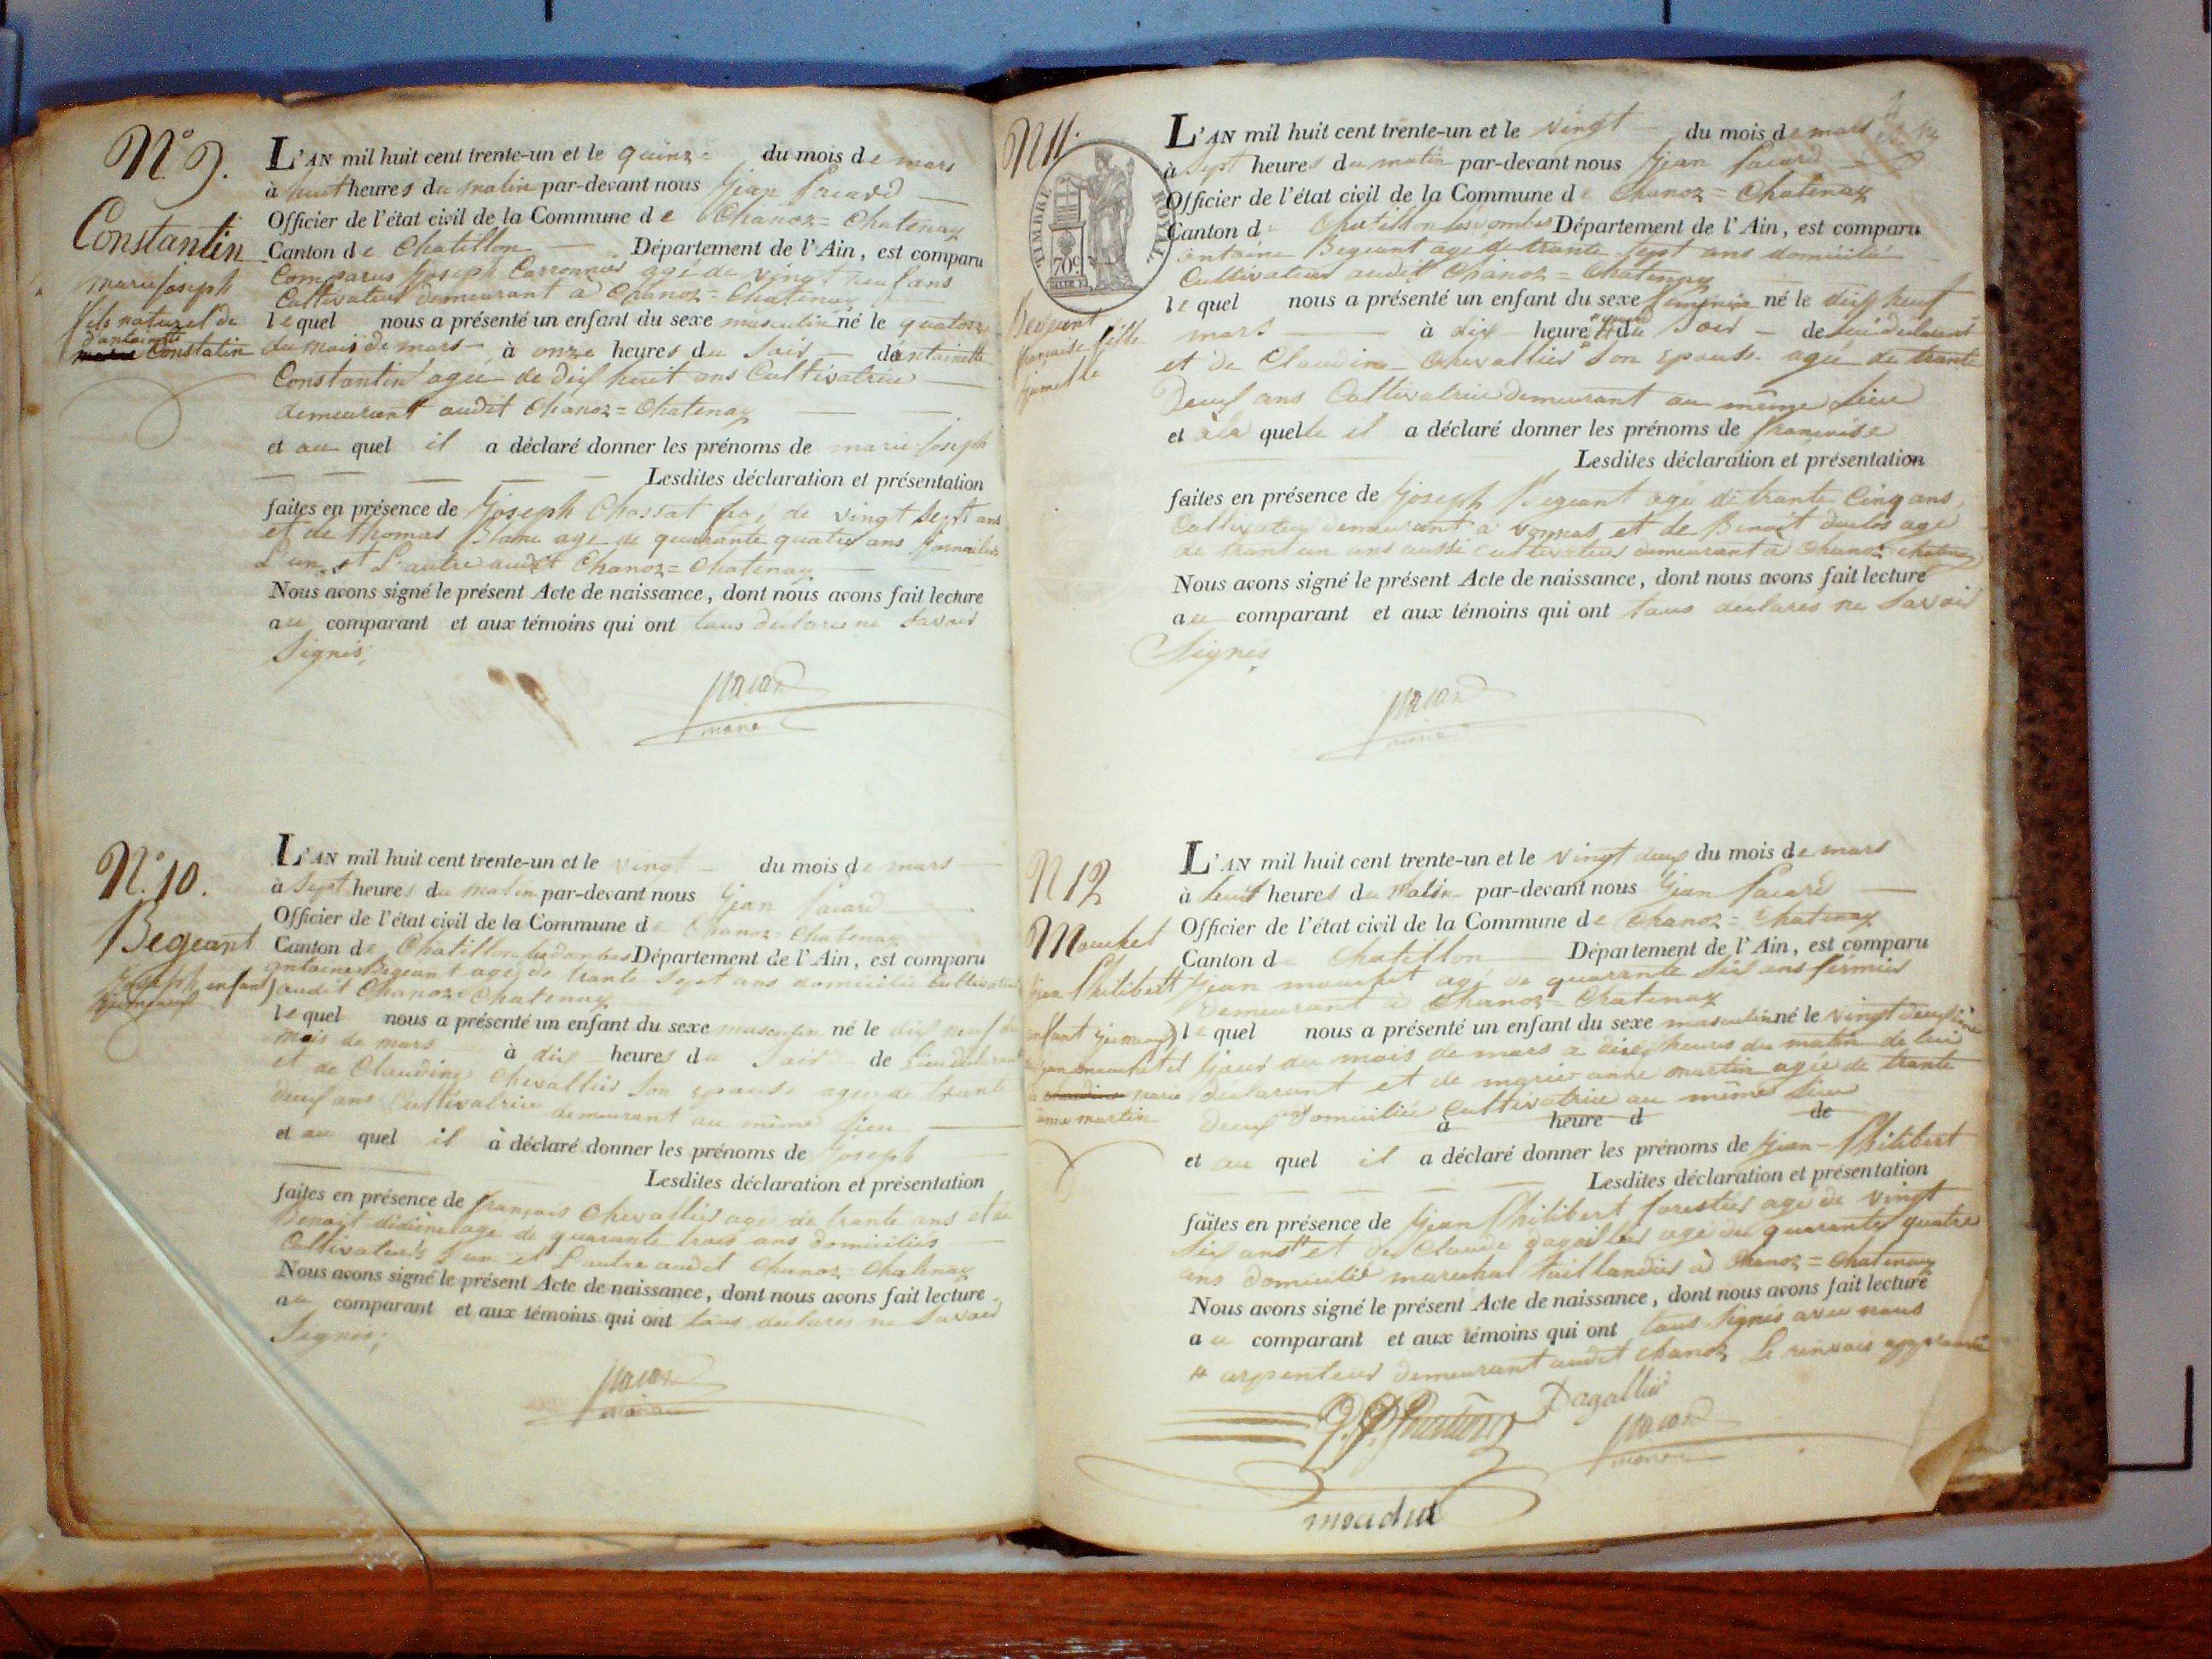 N.º 9.
Constantin
marie joseph
fils naturel de
d'antoinette
Constatin
L'AN mil huit cent trente-un et le quinze du mois de mars
à huit heures du matin par-devant nous Jean Pacard
Officier de l'état civil de la Commune de Chanoz = Chatenay
Canton de Chatillon Département de l'Ain, est comparu
Comparus Joseph agé de vingt neuf ans
Cultivateur demeurant a Chanoz = Chatenay
lequel nous a présenté un enfant du sexe masculin né le quatorze
du mois de mars à onze heures du soir d'antoinette
Constantin agée de dix huit ans Cultivatrice
demeurant audit Chanoz = Chatenay
et au quel il a déclaré donner les prénoms de marie joseph
Lesdites déclaration et présentation
faites en présence de Joseph Chossat agé de vingt sept ans
et de thomas Blanc age de quarante quatre ans
L'un et L'autre audit Chanoz = Chatenay
Nous avons signé le présent Acte de naissance, dont nous avons fait lecture
au comparant et aux témoins qui ont tous declaré ne savoir
Signés,
Pacard
maire
N.º 10.
Begeant
Joseph, enfant
L'AN mil huit cent trente-un et le vingt du mois de mars
à sept heures du matin par-devant nous Jean Pacard
Officier de l'état civil de la Commune de Chanoz Chatenay
Canton de Chatillon Département de l'Ain, est comparu
antoine Begeant agé de trante sept ans domicilié Cultivateur
audit Chanoz Chatenay
lequel nous a présenté un enfant du sexe masculin né le dix neuf du
mois de mars à dix heures du soir de lui declarant
et de Claudine Chevallier son epouse agée de trante
deux ans Cultivatrice demeurant au même lieu
et au quel il a déclaré donner les prénoms de Joseph
Lesdites déclaration et présentation
faites en présence de françois Chevallier agé de trante ans et de
Benoit agé de quarante trois ans domiciliés
Cultivateurs L'un et L'autre audit Chanoz = Chatenay
Nous avons signé le présent Acte de naissance, dont nous avons fait lecture
au comparant et aux témoins qui ont tous declarés ne savoir
Signés,
Pacard
maire
N 11.
TIMBRE ROYAL.
70c
Begeant
française fille
jumelle
L'AN mil huit cent trente-un et le vingt du mois de mars
à sept heures du matin par-devant nous Jean Pacard
Officier de l'état civil de la Commune de Chanoz = Chatenay
Canton de Département de l'Ain, est comparu
antoine Begeant agé de trante sept ans domicilié
Cultivateur audit Chanoz = Chatenay
lequel nous a présenté un enfant du sexe feminin né le dix neuf
mars à dix heure du soir de lui declarant
et de Claudine Chevallier son epouse agée de trante
deux ans Cultivatrice demeurant au même lieu
et à la quelle il a déclaré donner les prénoms de françoise
Lesdites déclaration et présentation
faites en présence de Joseph Begeant agé de trante Cinq ans
Cultivateur demeurant a Vonnas et de Benoit age
de trant un ans aussi cultivateur demeurant à Chanoz chatenay
Nous avons signé le présent Acte de naissance, dont nous avons fait lecture
au comparant et aux témoins qui ont tous declarés ne savoir
Signés
Pacard
maire
N 12
jean Philibert
enfant
marie
anne martin
L'AN mil huit cent trente-un et le vingt deux du mois de mars
à huit heures du matin par-devant nous Jean Pacard
Officier de l'état civil de la Commune de Chanoz = Chatenay
Canton de Chatillon Département de l'Ain, est comparu
Jean agé de quarante six ans fermier
demeurant a Chanoz = Chatenay
lequel nous a présenté un enfant du sexe masculin né le vingt deuxième
jour du mois de mars a heures du matin de lui
declarant et de marie anne martin agée de trante
deux ans domiciliée Cultivatrice au même lieu
à heure d de
et au quel il a déclaré donner les prénoms de Jean-Philibert
Lesdites déclaration et présentation
faites en présence de Jean Philibert forestier agé de vingt
six ans # et de Claude agé de quarante quatre
ans domicilié marechal taillandier à Chanoz = Chatenay
Nous avons signé le présent Acte de naissance, dont nous avons fait lecture
au comparant et aux témoins qui ont tous Signés avec nous
# arpenteur demeurant audit Chanoz Le renvois approuvé
Dagallier
Pacard
maire